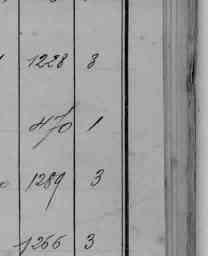 1228 8
470 1
1289 3
1266 3